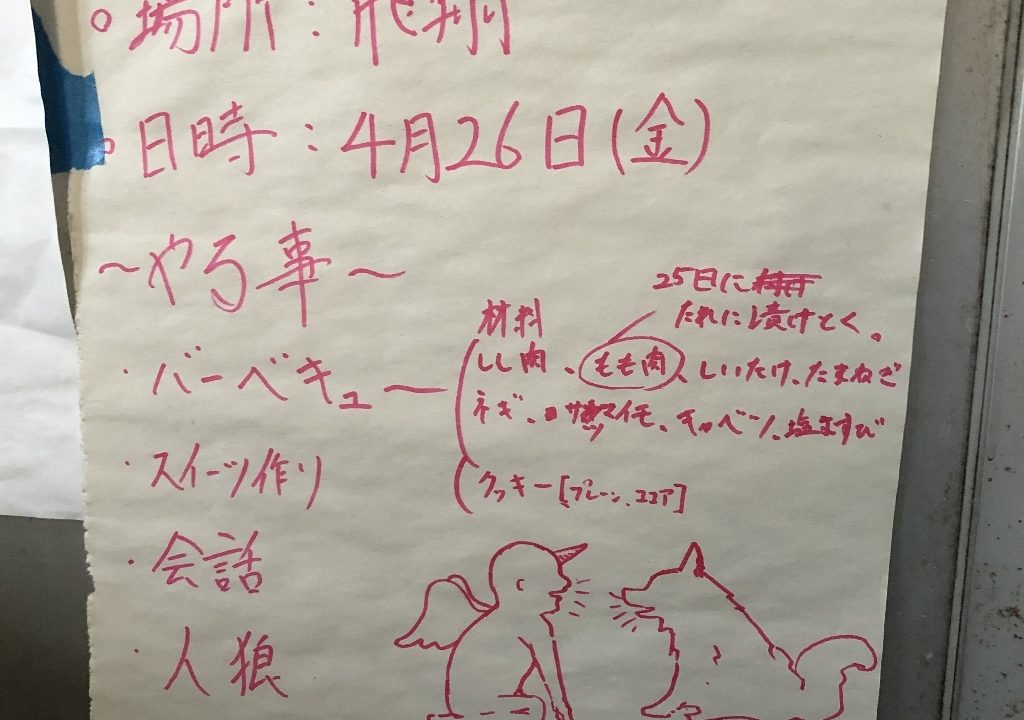 。場所：飛翔
。日時：4月26日(金)
～やる事～
25日に
たれに漬けとく。
材料
・バーベキュー
しし肉、もも肉、しいたけ、たまねぎ
ネギ、サツマイモ、キャベツ、塩むすび
・スイーツ作り
クッキー[プレーン、ココア]
・会話
・人狼